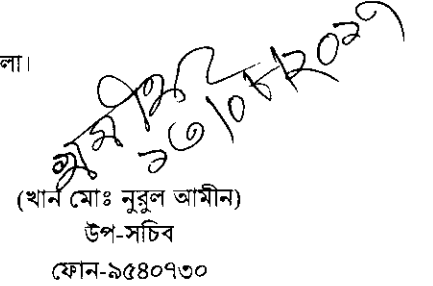 লা।
২৩/০৮/২০২৭
(খান মোঃ নুরুল আমীন)
উপ-সচিব
ফোন-৯৫৪০৭৩০